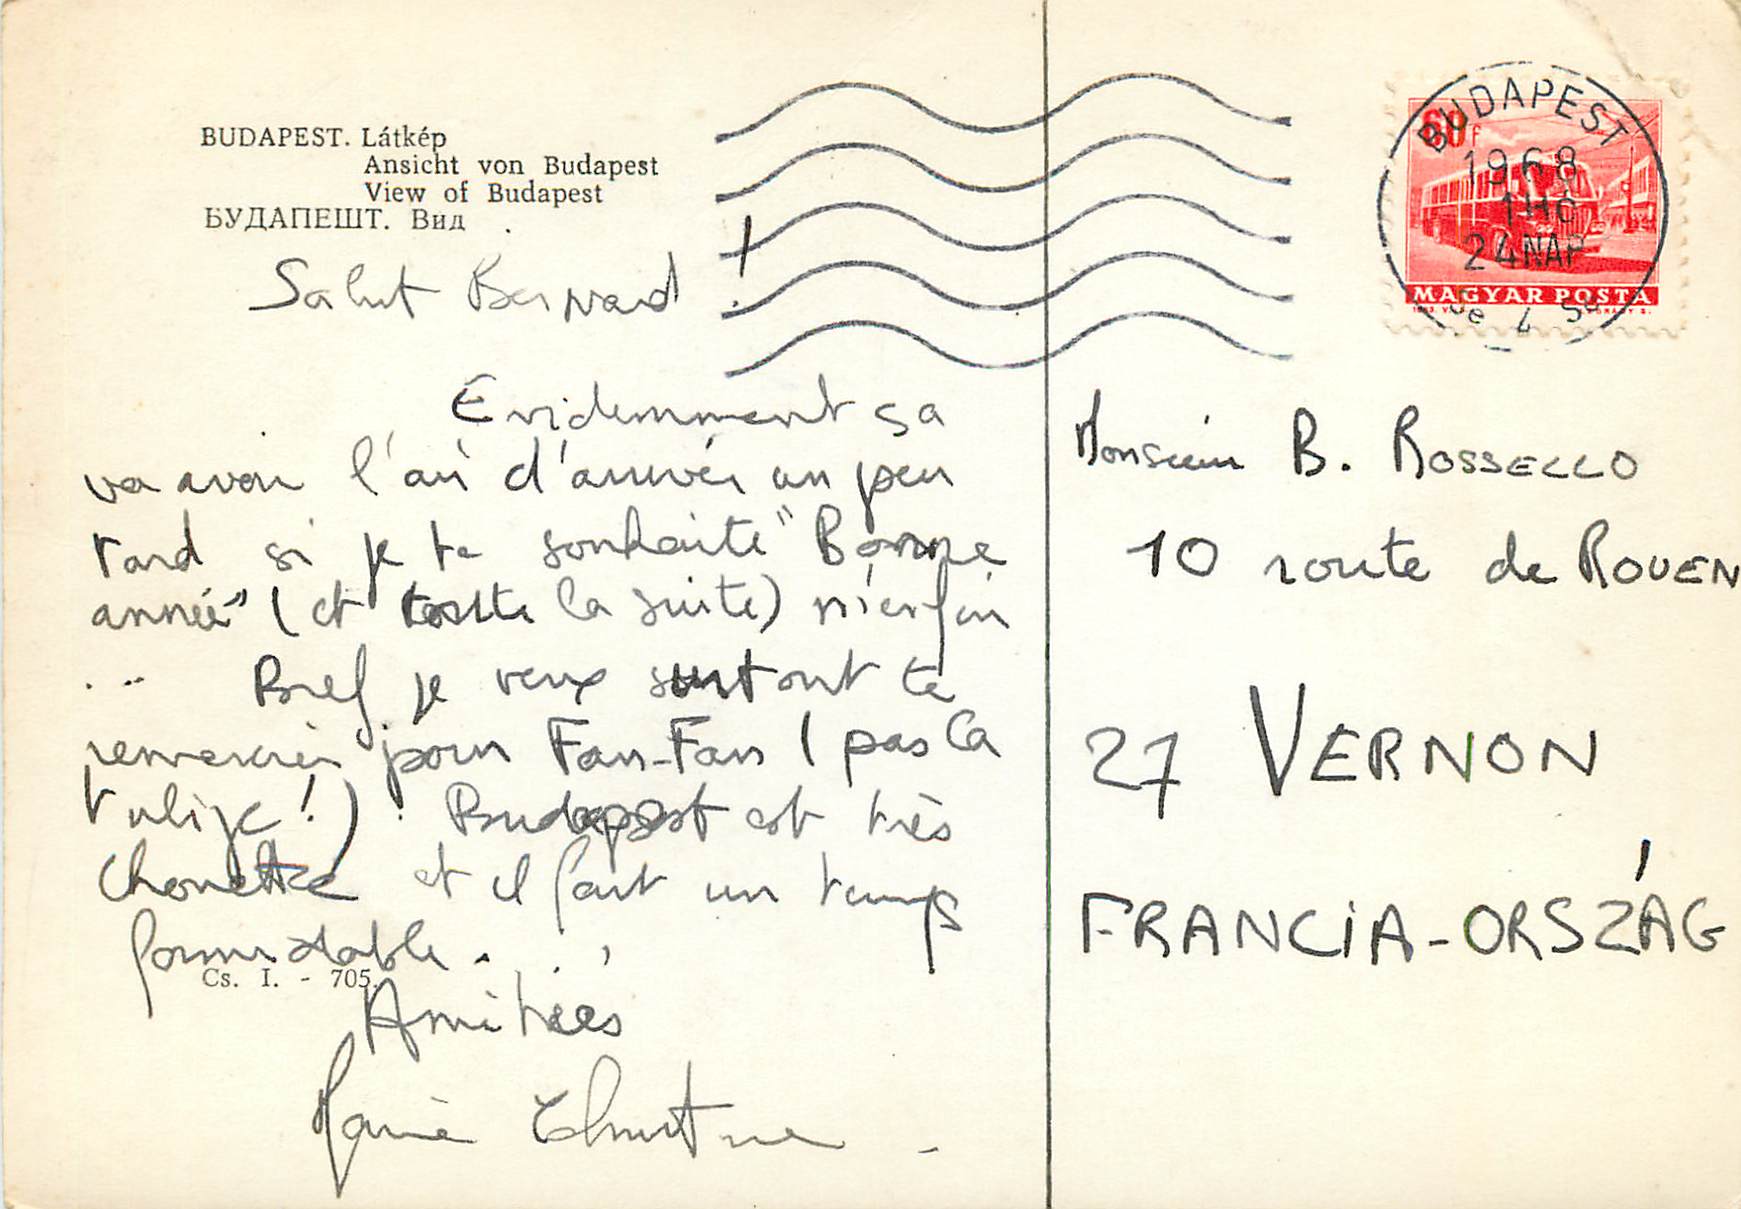 BUDAPEST. Látkép
Ansicht von Budapest
View of Budapest
БУДАПЕШТ. Вид
Salut Bernard !
Evidemment sa
va avoir l'air d'arriver un peu
tard si je te souhaite "Bonne
année" (et toute la suite) m'enfin
... Bref je veux surtout te
remercier pour Fan-Fan (pas la
tulipe !). Budapest est très
chouette et il fait un temps
formidable.
Amitiés
Marie Christine
Cs. I. - 705.
60 f
MAGYAR POSTA
BUDAPEST
1968
24 NAP
Monsieur B. ROSSELLO
10 route de ROUEN
27 VERNON
FRANCIA-ORSZÁG